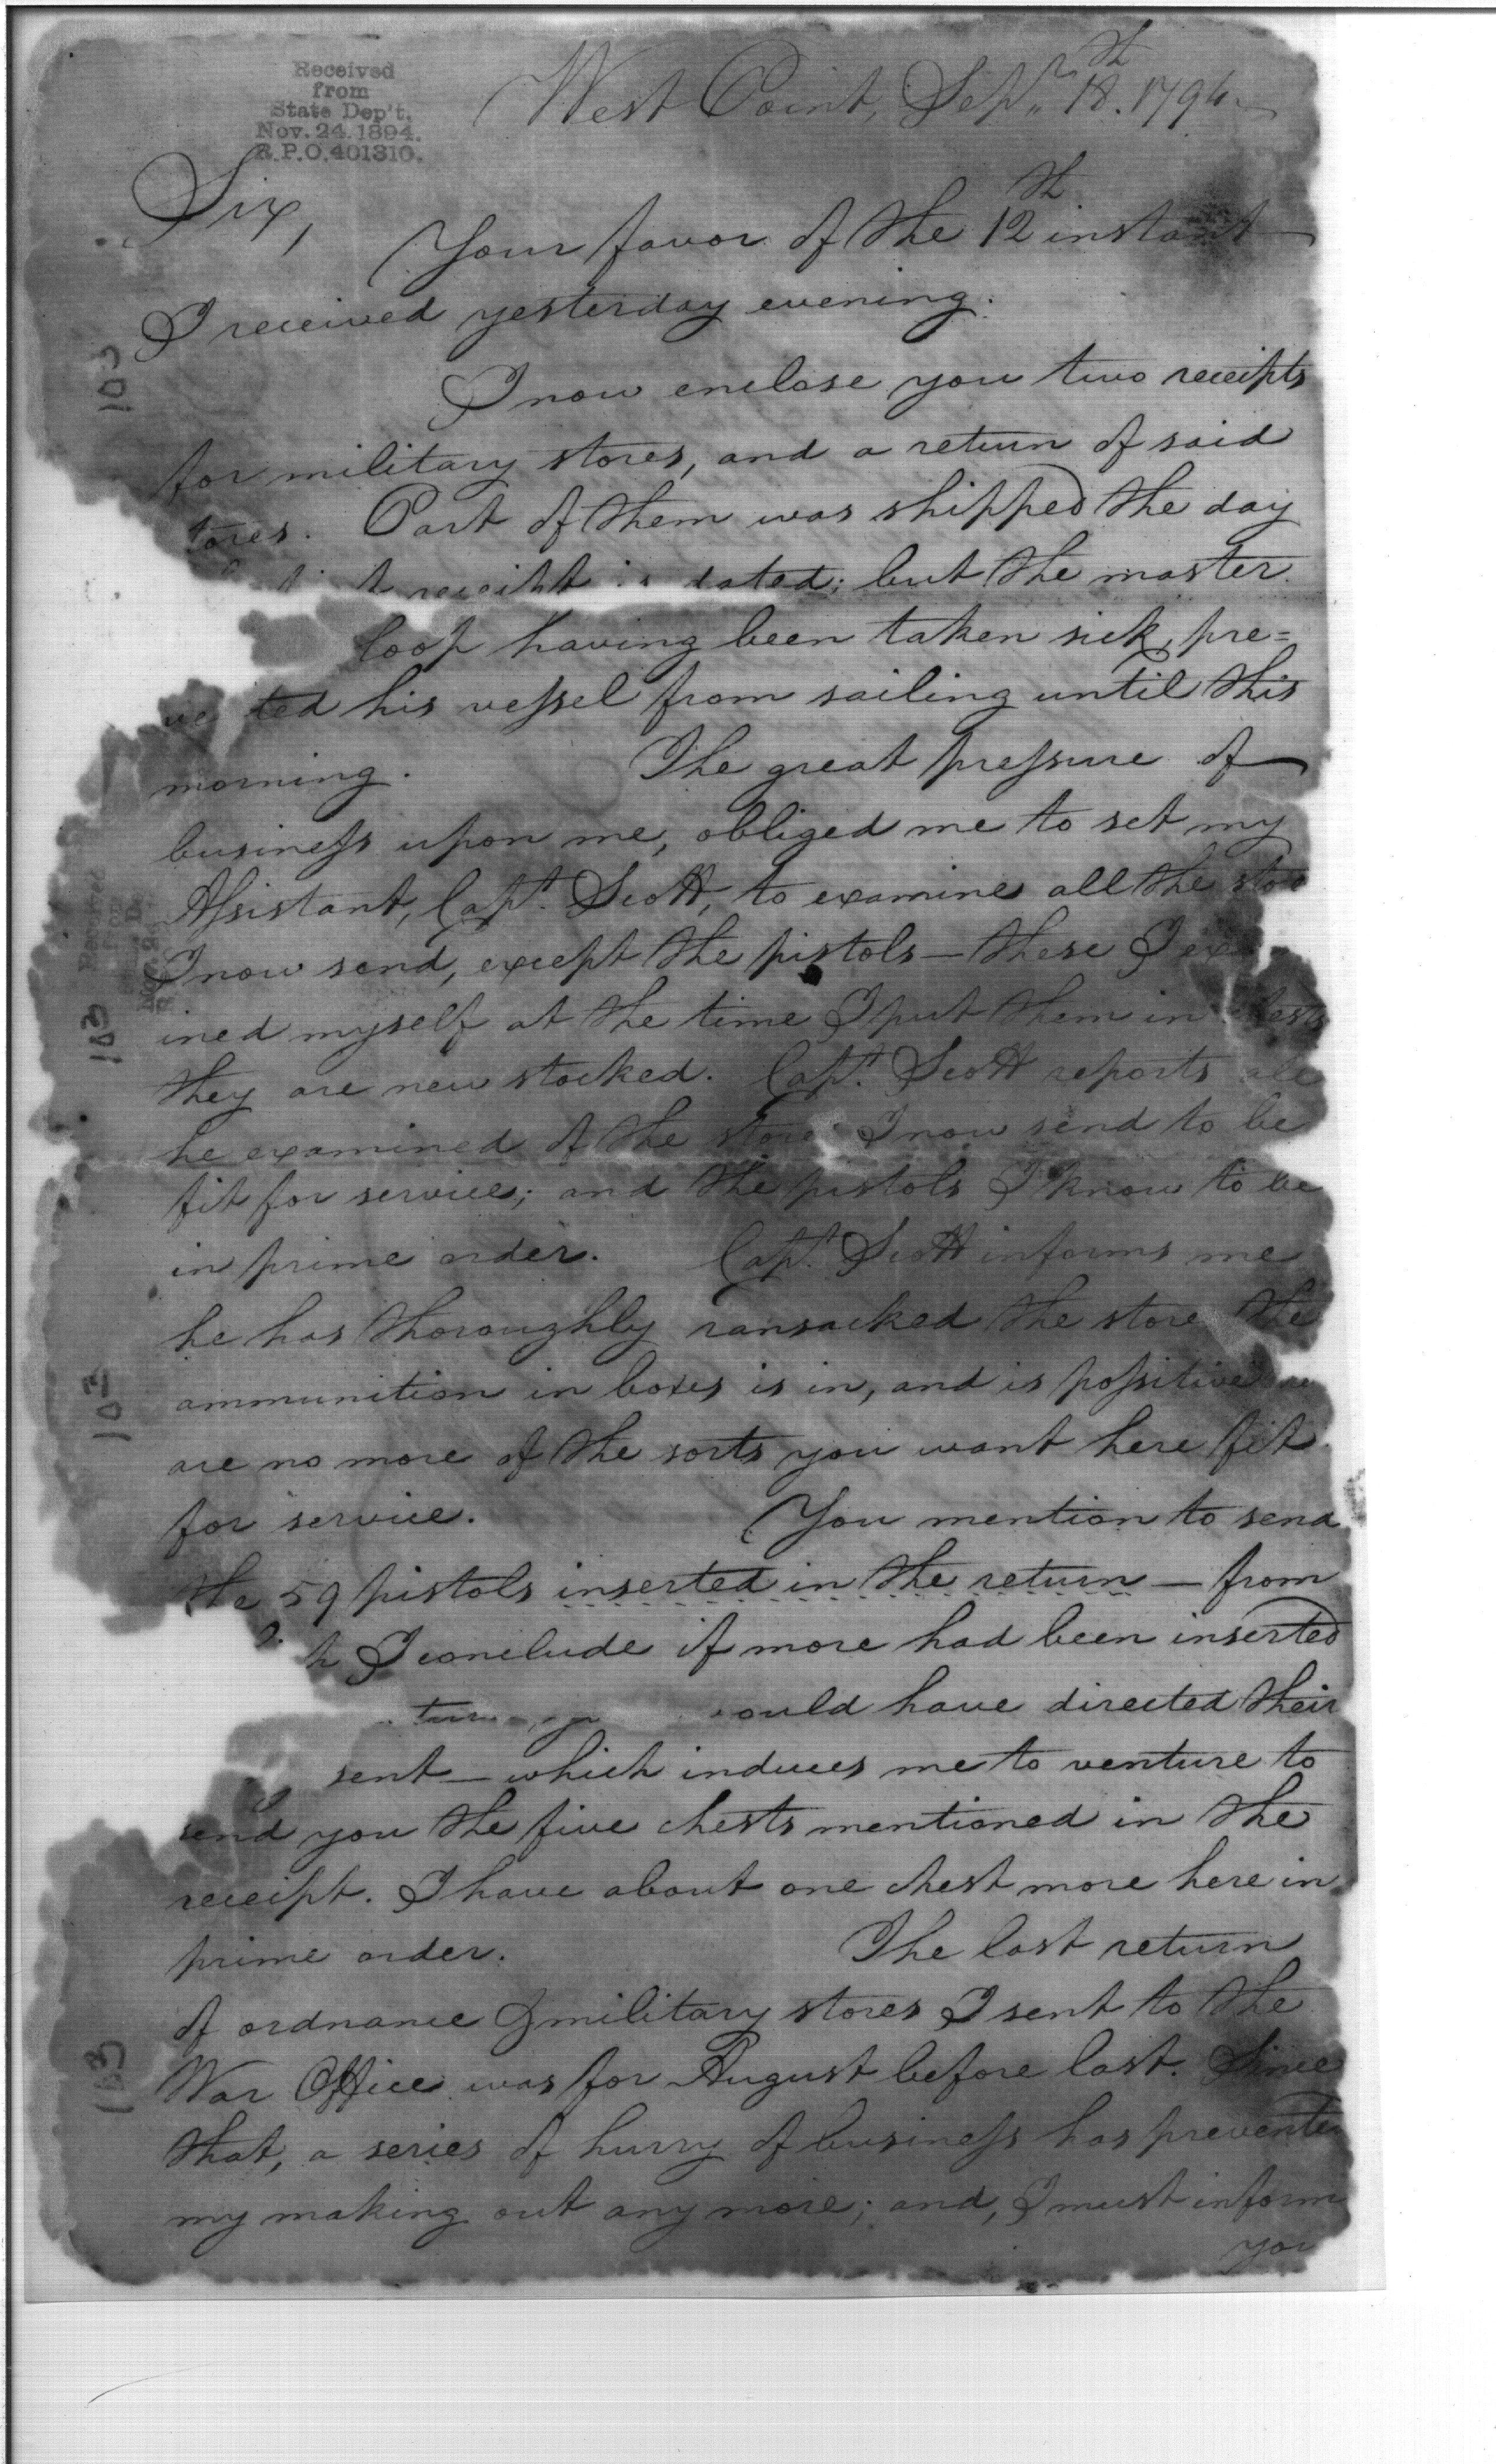 Received
from
State Dep't.
Nov. 24. 1894.
R.P.O. 401310.
West Point, Sepr. 18th. 1794.
Sir,
Your favor of the 12th instant
I received yesterday evening.
I now enclose you two receipts
for military stores, and a return of said
tores. Part of them was shipped the day
t receipt is dated; but the master
loop having been taken sick, pre=
ve ted his vessel from sailing until this
morning. The great pressure of
business upon me, obliged me to set my
Assistant, Capt. Scott, to examine all the sto
I now send, except the pistols — these I ex
ined myself at the time I put them in chests
they are new stocked. Capt. Scott reports all
he examined of the stores I now send to be
fit for service; and the pistols I know to be
in prime order. Capt. Scott informs me
he has thoroughly ransacked the store the
ammunition in boxes is in, and is possitive
are no more of the sorts you want here fit
for service. You mention to send
the 59 pistols inserted in the return — from
h I conclude if more had been inserted
turn ould have directed their
sent — which induces me to venture to
send you the five chests mentioned in the
receipt. I have about one chest more here in
prime order. The last return
of ordnance & military stores I sent to the
War Office was for August before last. Since
that, a series of hurry of business has prevented
my making out any more; and, I must inform
you
103
103
103
103